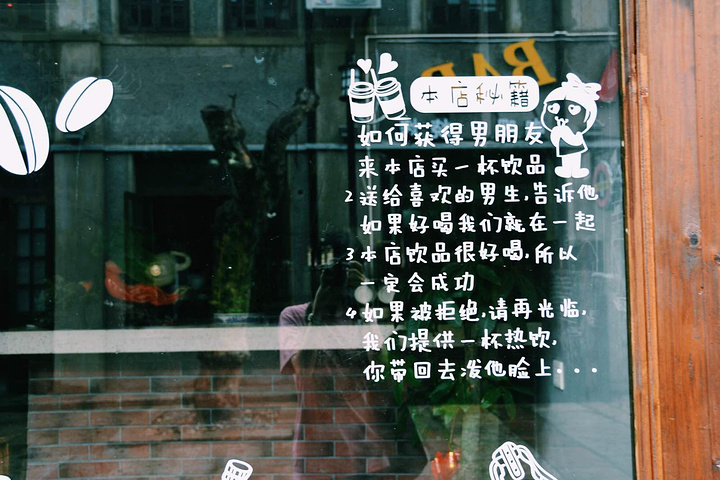 BAR
本店秘籍
如何获得男朋友
来本店买一杯饮品
2送给喜欢的男生,告诉他
如果好喝我们就在一起
3本店饮品很好喝,所以
一定会成功
4如果被拒绝,请再光临,
我们提供一杯热饮,
你带回去泼他脸上...